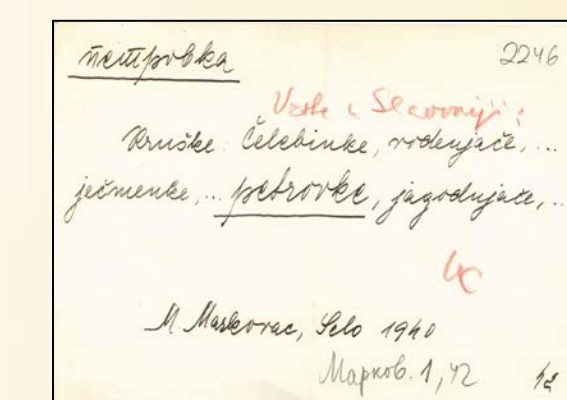 петровка
2246
Vrste u Slavoniji:
Kruške: Čelebinke, vodenjače, ...
ječmenke, ... petrovke, jagodnjače, ..
M. Markovac, Selo 1940
Марков. 1, 42